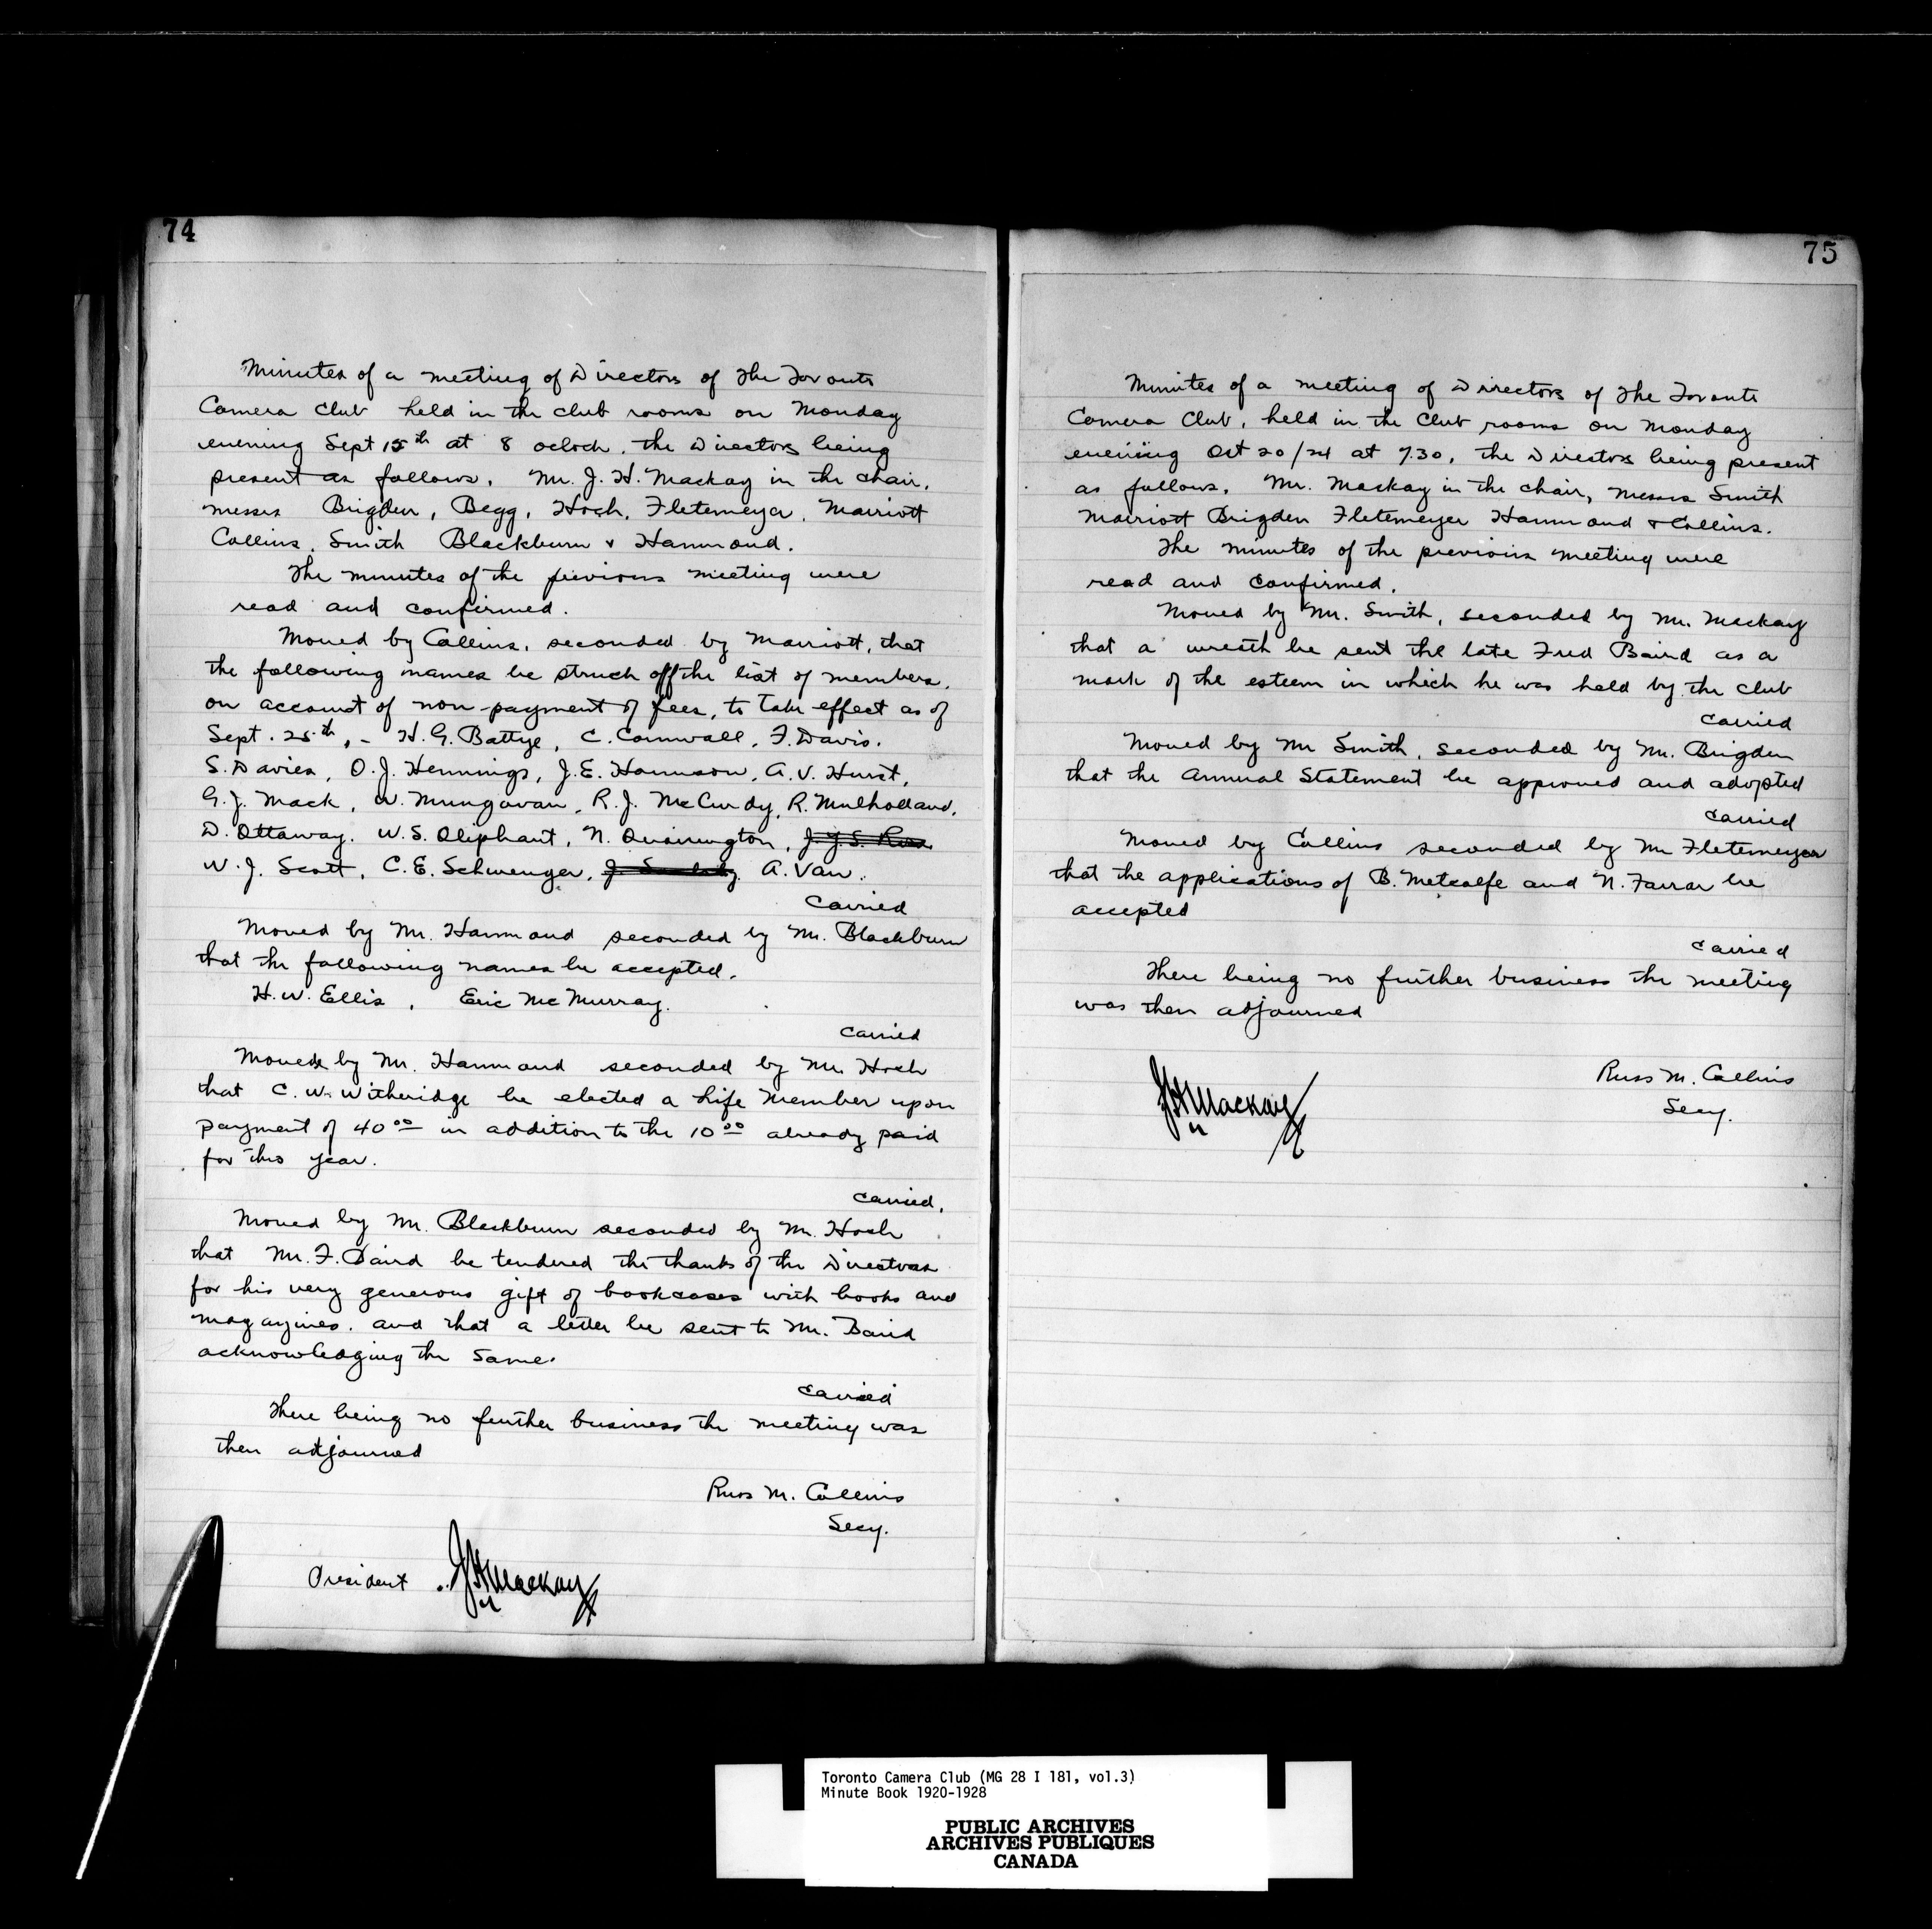 74
Minutes of a meeting of Directors of The Toronto
Camera Club held in the club rooms on Monday
evening Sept 15th at 8 oclock. the Directors being
present as follows. Mr. J. H. Mackay in the chair.
Messrs Brigden, Begg, Hoch, Fletemeyer, Marriott
Collins, Smith Blackburn & Hammond.
The minutes of the previous meeting were
read and confirmed.
Moved by Collins, seconded by Marriott, that
the following names be struck off the list of members,
on account of non-payment of fees, to take effect as of
Sept. 25th, - H. G. Battye, C. Cornwall, F. Davis.
S. Davies, O. J. Hennings, J. E. Harrison, A. V. Hurst,
G. J. Mack, W. Mungovan, R. J. McCurdy, R. Mulholland,
D. Ottaway. W. S. Oliphant, N. Quarrington, J. Y. S. Ross
W. J. Scott, C. E. Schwenger, A. Van.
Carried
Moved by Mr. Hammond seconded by Mr. Blackburn
that the following names be accepted.
H. W. Ellis, Eric McMurray.
Carried
Moved by Mr. Hammond seconded by Mr Hoch
that C. W. Witheridge be elected a Life Member upon
payment of 40 00 in addition to the 10 00 already paid
for this year.
Carried.
Moved by Mr. Blackburn seconded by Mr. Hoch
that Mr. F. Baird be tendered the thanks of the Directors
for his very generous gift of bookcases with books and
magazines. and that a letter be sent to Mr. Baird
acknowledging the same.
Carried
There being no further business the meeting was
then adjourned
Russ M. Collins
Secy.
President J H Mackay
75
Minutes of a meeting of Directors of The Toronto
Camera Club, held in the Club rooms on Monday
evening Oct 20/24 at 7.30, the Directors being present
as follows. Mr. Mackay in the chair, Messrs Smith
Marriott Brigden Fletemeyer Hammond & Collins.
The minutes of the previous meeting were
read and confirmed.
Moved by Mr. Smith, seconded by Mr. Mackay
that a wreath be sent the late Fred Baird as a
mark of the esteem in which he was held by the club
Carried
Moved by Mr Smith, seconded by Mr. Brigden
that the Annual Statement be approved and adopted
Carried
Moved by Collins seconded by Mr Fletemeyer
that the applications of B. Metcalfe and N. Farrar be
accepted
Carried
There being no further business the meeting
was then adjourned
Russ M. Collins
Secy.
J H Mackay
Toronto Camera Club (MG 28 I 181, vol.3)
Minute Book 1920-1928
PUBLIC ARCHIVES
ARCHIVES PUBLIQUES
CANADA